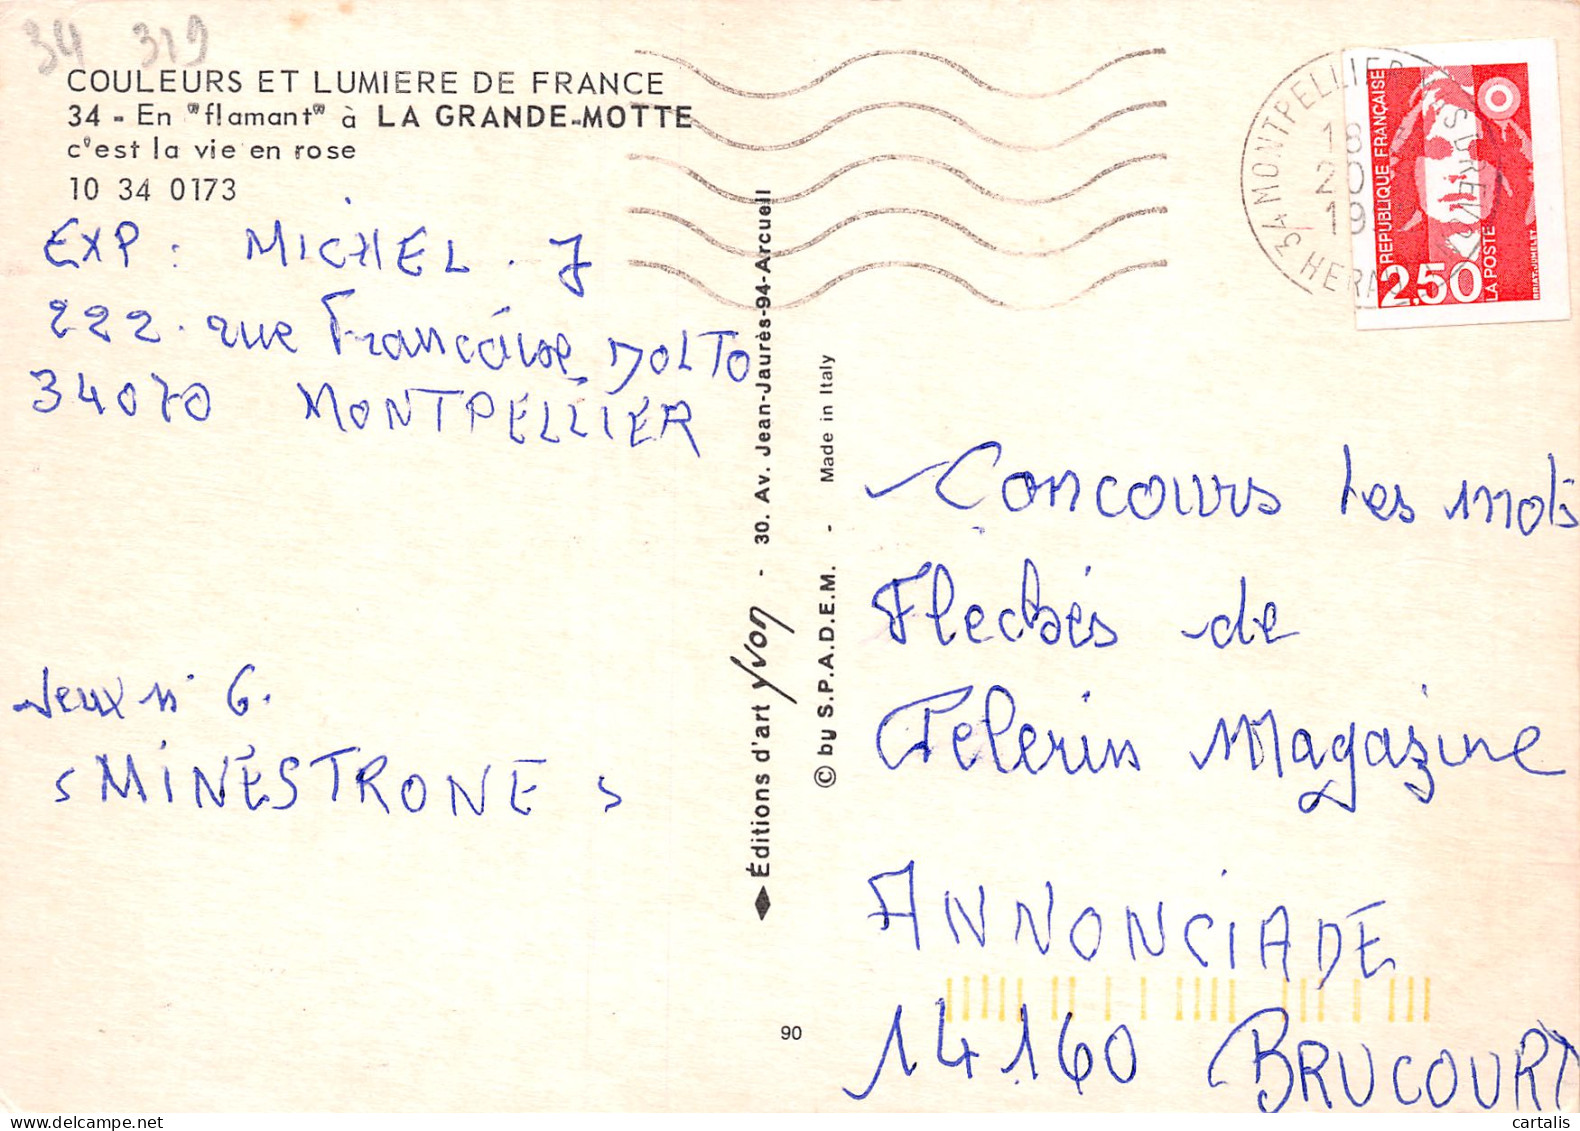 34 319
COULEURS ET LUMIERE DE FRANCE
34 - En "flamant" à LA GRANDE-MOTTE
c'est la vie en rose
10 34 0173
EXP : MICHEL . J
222. rue Françoise DOLTO
34070 MONTPELLIER
Jeux n° 6.
MINESTRONE
Éditions d'art Yvon - 30. Av. Jean-Jaurès-94-Arcueil
© by S.P.A.D.E.M. - Made in Italy
90
34 MONTPELLIER
18
20
19
HERAULT
RÉPUBLIQUE FRANÇAISE
2,50
LA POSTE
BRIAT-JUMELET
Concours Les mots
Flechés de
Pelerin Magazine
ANNONCIADE
14160 BRUCOURT
www.delcampe.net
cartalis